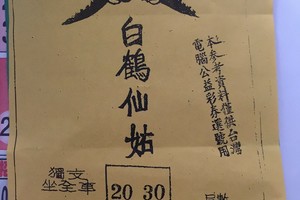 本參考資料僅供台灣
電腦公益彩券選號用
白鶴仙姑
獨文
坐全車
20 30